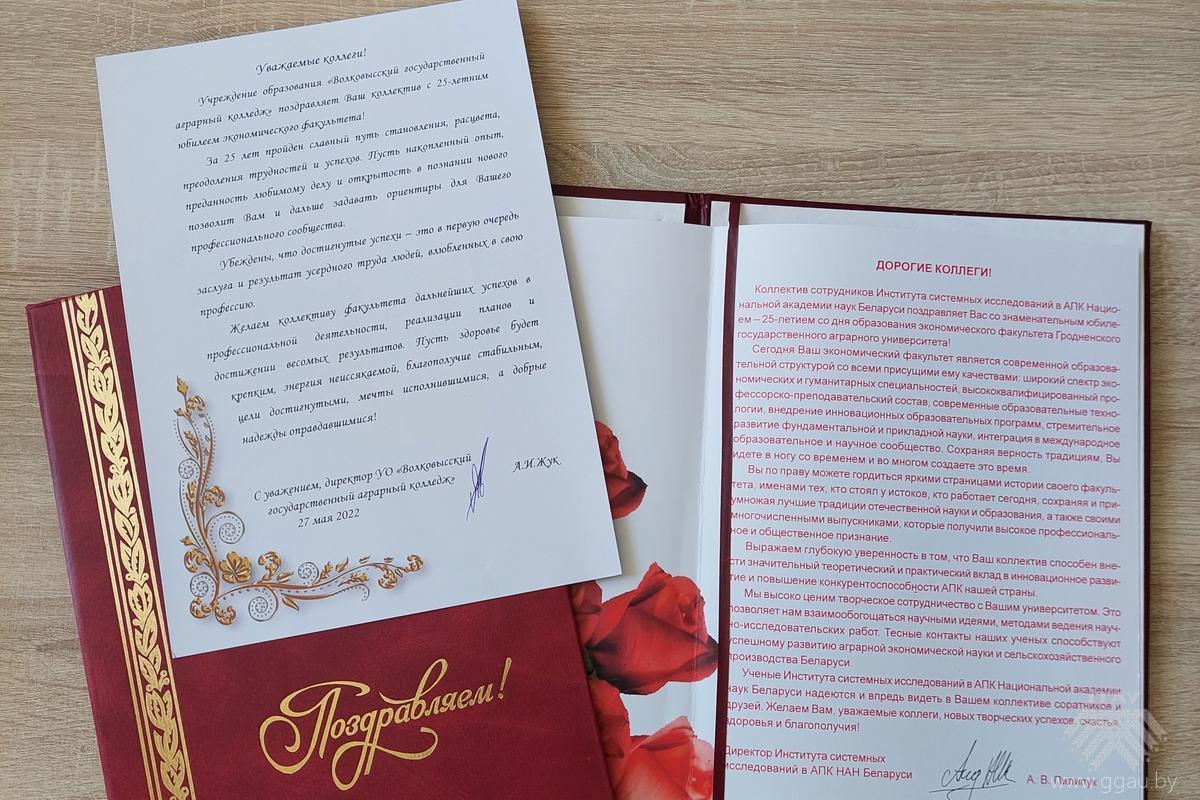 Уважаемые коллеги!
Учреждение образования «Волковысский государственный
аграрный колледж» поздравляет Ваш коллектив с 25-летним
юбилеем экономического факультета!
За 25 лет пройден славный путь становления, расцвета,
преодоления трудностей и успехов. Пусть накопленный опыт,
преданность любимому делу и открытость в познании нового
позволит Вам и дальше задавать ориентиры для Вашего
профессионального сообщества.
Убеждены, что достигнутые успехи – это в первую очередь
заслуга и результат усердного труда людей, влюбленных в свою
профессию.
Желаем коллективу факультета дальнейших успехов в
профессиональной деятельности, реализации планов и
достижении весомых результатов. Пусть здоровье будет
крепким, энергия неиссякаемой, благополучие стабильным,
цели достигнутыми, мечты исполнившимися, а добрые
надежды оправдавшимися!
С уважением, директор УО «Волковысский
государственный аграрный колледж» А.И.Жук
27 мая 2022
Поздравляем!
ДОРОГИЕ КОЛЛЕГИ!
Коллектив сотрудников Института системных исследований в АПК Нацио-
нальной академии наук Беларуси поздравляет Вас со знаменательным юбиле-
ем – 25-летием со дня образования экономического факультета Гродненского
государственного аграрного университета!
Сегодня Ваш экономический факультет является современной образова-
тельной структурой со всеми присущими ему качествами: широкий спектр эко-
номических и гуманитарных специальностей, высококвалифицированный про-
фессорско-преподавательский состав, современные образовательные техно-
логии, внедрение инновационных образовательных программ, стремительное
развитие фундаментальной и прикладной науки, интеграция в международное
образовательное и научное сообщество. Сохраняя верность традициям, Вы
идете в ногу со временем и во многом создаете это время.
Вы по праву можете гордиться яркими страницами истории своего факуль-
тета, именами тех, кто стоял у истоков, кто работает сегодня, сохраняя и при-
умножая лучшие традиции отечественной науки и образования, а также своими
многочисленными выпускниками, которые получили высокое профессиональ-
ное и общественное признание.
Выражаем глубокую уверенность в том, что Ваш коллектив способен вне-
сти значительный теоретический и практический вклад в инновационное разви-
тие и повышение конкурентоспособности АПК нашей страны.
Мы высоко ценим творческое сотрудничество с Вашим университетом. Это
позволяет нам взаимообогощаться научными идеями, методами ведения науч-
но-исследовательских работ. Тесные контакты наших ученых способствуют
успешному развитию аграрной экономической науки и сельскохозяйственного
производства Беларуси.
Ученые Института системных исследований в АПК Национальной академии
наук Беларуси надеются и впредь видеть в Вашем коллективе соратников и
друзей. Желаем Вам, уважаемые коллеги, новых творческих успехов, счастья,
здоровья и благополучия!
Директор Института системных
исследований в АПК НАН Беларуси А. В. Пилипук
www.ggau.by